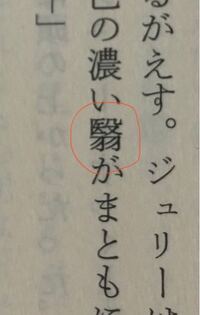 るがえす。ジュリーは
色の濃い翳がまとも
」